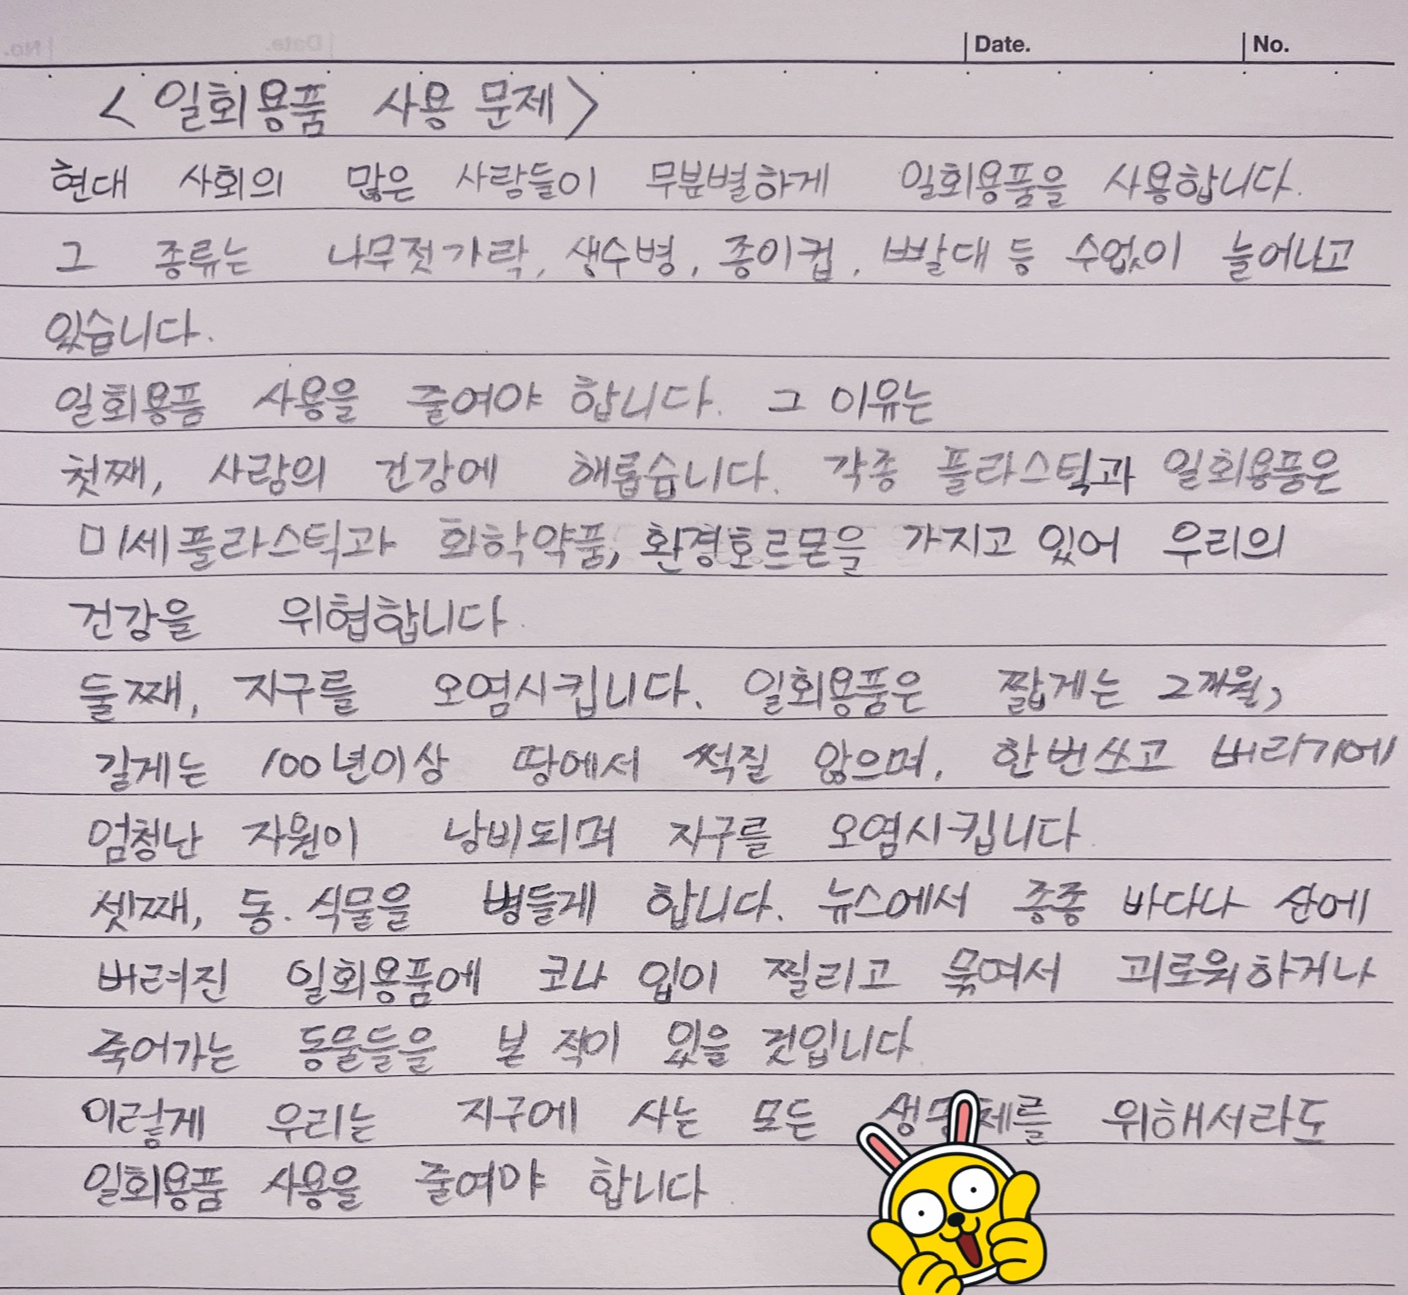 Date. No.
<일회용품 사용 문제>
현대 사회의 많은 사람들이 무분별하게 일회용품을 사용합니다.
그 종류는 나무젓가락, 생수병, 종이컵, 빨대 등 수없이 늘어나고
있습니다.
일회용품 사용을 줄여야 합니다. 그 이유는
첫째, 사람의 건강에 해롭습니다. 각종 플라스틱과 일회용품은
미세플라스틱과 화학약품, 환경호르몬을 가지고 있어 우리의
건강을 위협합니다.
둘째, 지구를 오염시킵니다. 일회용품은 짧게는 2개월,
길게는 100년이상 땅에서 썩질 않으며, 한번쓰고 버리기에
엄청난 자원이 낭비되며 지구를 오염시킵니다.
셋째, 동.식물을 병들게 합니다. 뉴스에서 종종 바다나 산에
버려진 일회용품에 코나 입이 찔리고 묶여서 괴로워하거나
죽어가는 동물들을 본 적이 있을 것입니다.
이렇게 우리는 지구에 사는 모든 위해서라도
일회용품 사용을 줄여야 합니다.